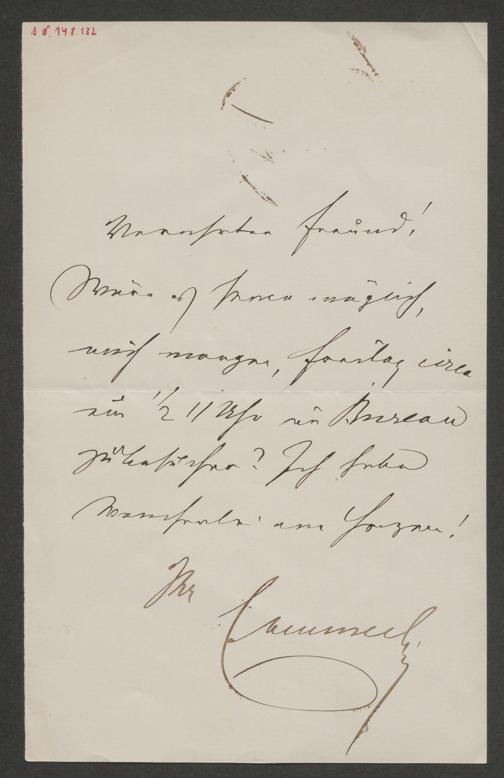 Verehrter Freund!
Wäre es Ihnen möglich,
mich morgen, Freitag circa
um 1/2 11 Uhr im Bureau
zu besuchen? Ich habe
Mancherlei am Herzen!
Ihr